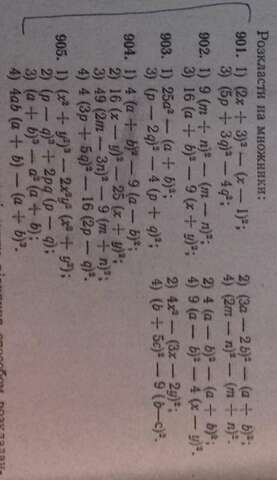 Розкласти на множники:
901. 1) (2x + 3)² — (x — 1)²; 2) (3a — 2b)² — (a + b)²;
3) (5p + 3q)² — 4q²; 4) (2m — n)² — (m + n)².
902. 1) 9 (m + n)² — (m — n)²; 2) 4 (a — b)² — (a + b)²;
3) 16 (a + b)² — 9 (x + y)²; 4) 9 (a — b)² — 4 (x — y)².
903. 1) 25a² — (a + b)²; 2) 4x² — (3x — 2y)²;
3) (p — 2q)² — 4 (p + q)²; 4) (b + 5c)² — 9 (b — c)².
904. 1) 4 (a + b)² — 9 (a — b)²;
2) 16 (x — y)² — 25 (x + y)²;
3) 49 (2m — 3n)² — 9 (m + n)²;
4) 4 (3p + 5q)² — 16 (2p — q)².
905. 1) (x² + y²)³ — 2x²y² (x² + y²);
2) (p — q)³ + 2pq (p — q);
3) (a + b)³ — a² (a + b);
4) 4ab (a + b) — (a + b)³.
способом розкладан-